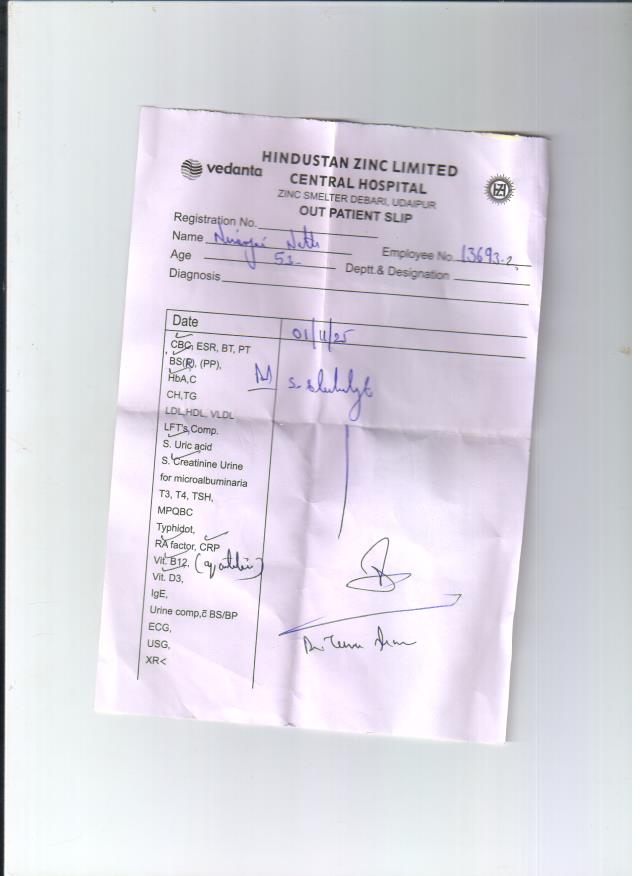 vedanta
HINDUSTAN ZINC LIMITED
CENTRAL HOSPITAL
ZINC SMELTER DEBARI, UDAIPUR
OUT PATIENT SLIP
Registration No.
Name
Employee No. 13693-2
Age 53
Deptt.& Designation
Diagnosis
Date 01/11/25
CBC, ESR, BT, PT
BS(R), (PP),
HbA,C
CH,TG
LDL,HDL, VLDL
LFT's,Comp.
S. Uric acid
S. Creatinine Urine
for microalbuminaria
T3, T4, TSH,
MPQBC
Typhidot,
RA factor, CRP
Vit. B12,
Vit. D3,
IgE,
Urine comp,c̄ BS/BP
ECG,
USG,
XR<